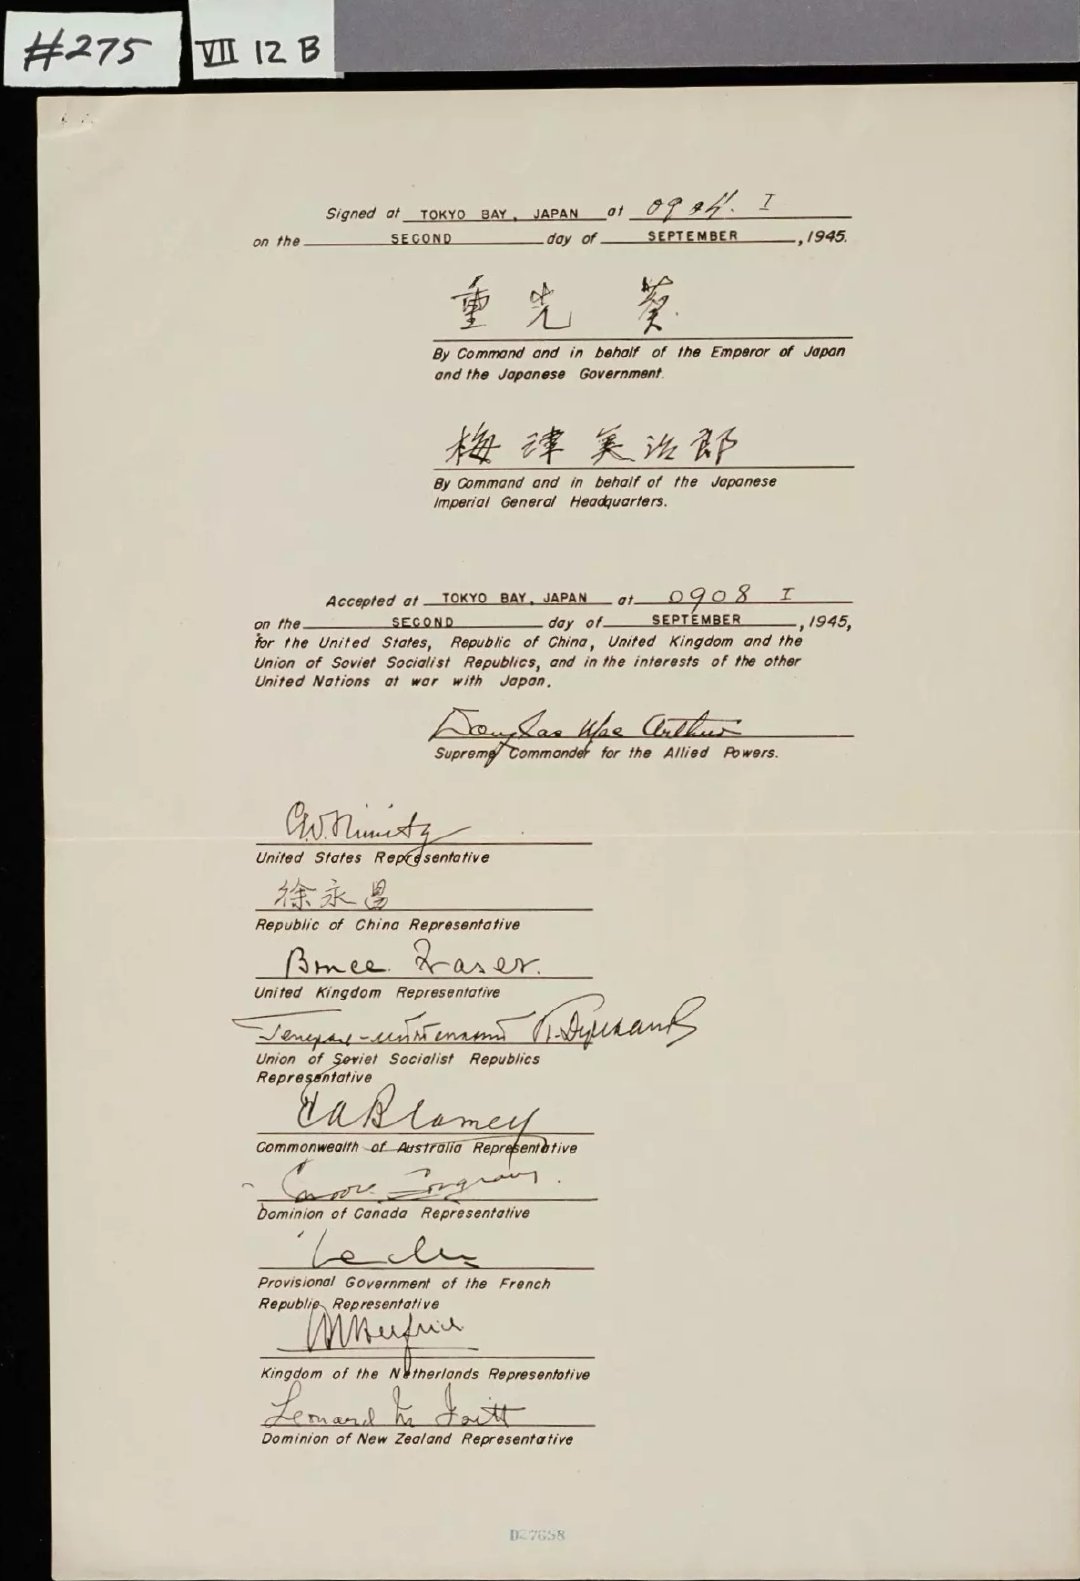 #275
VII 12 B
Signed at TOKYO BAY, JAPAN at 0904 I
on the SECOND day of SEPTEMBER, 1945.
重光 葵
By Command and in behalf of the Emperor of Japan
and the Japanese Government.
梅津美治郎
By Command and in behalf of the Japanese
Imperial General Headquarters.
Accepted at TOKYO BAY, JAPAN at 0908 I
on the SECOND day of SEPTEMBER, 1945,
for the United States, Republic of China, United Kingdom and the
Union of Soviet Socialist Republics, and in the interests of the other
United Nations at war with Japan.
Douglas MacArthur
Supreme Commander for the Allied Powers.
C.W. Nimitz
United States Representative
徐永昌
Republic of China Representative
Bruce Fraser.
United Kingdom Representative
Генерал-лейтенант
Union of Soviet Socialist Republics
Representative
T A Blamey
Commonwealth of Australia Representative
Moore Cosgrave.
Dominion of Canada Representative
Provisional Government of the French
Republic Representative
Helfrich
Kingdom of the Netherlands Representative
Leonard M Isitt
Dominion of New Zealand Representative